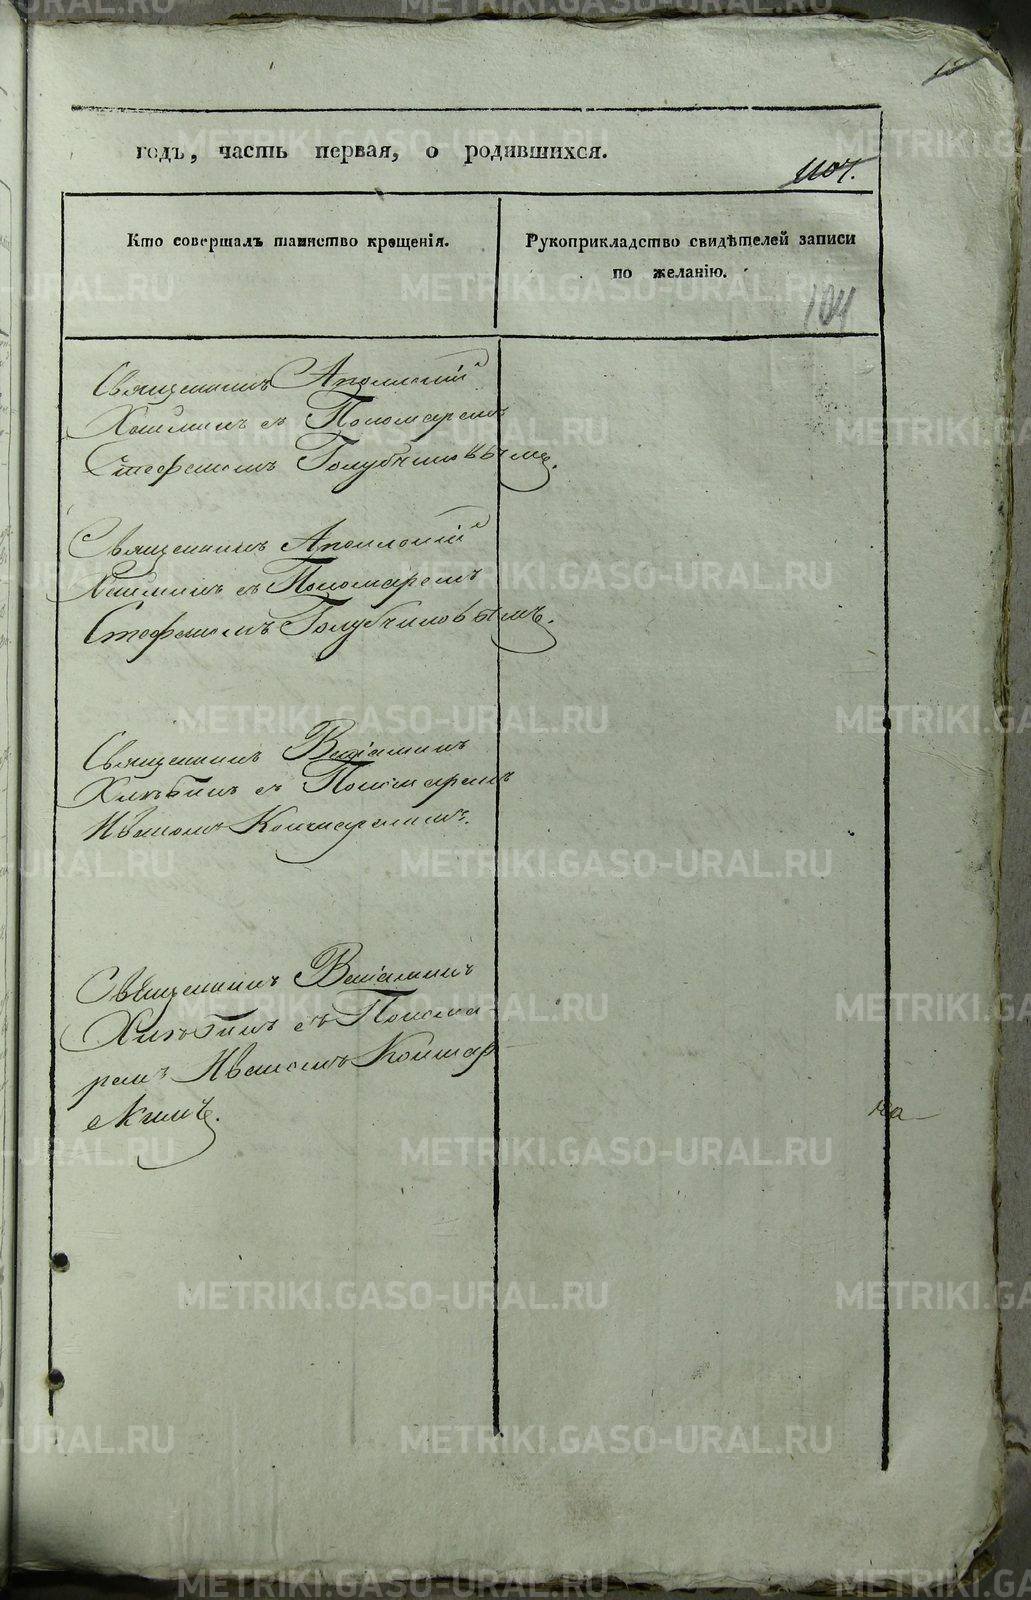 годъ, часть первая, о родившихся.
1104.
Кто совершалъ таинство крещенія.
Рукоприкладство свидѣтелей записи
по желанію.
104
Священникъ Аполлоній
съ Пономаремъ
Стефаномъ Голубчиковымъ.
Священникъ Аполлоній
съ Пономаремъ
Стефаномъ Голубчиковымъ.
Священникъ Веніаминъ
Хлѣбинъ съ Пономаремъ
Иваномъ
Священникъ Веніаминъ
Хлѣбинъ съ Понома-
ремъ Иваномъ
METRIKI.GASO-URAL.RU